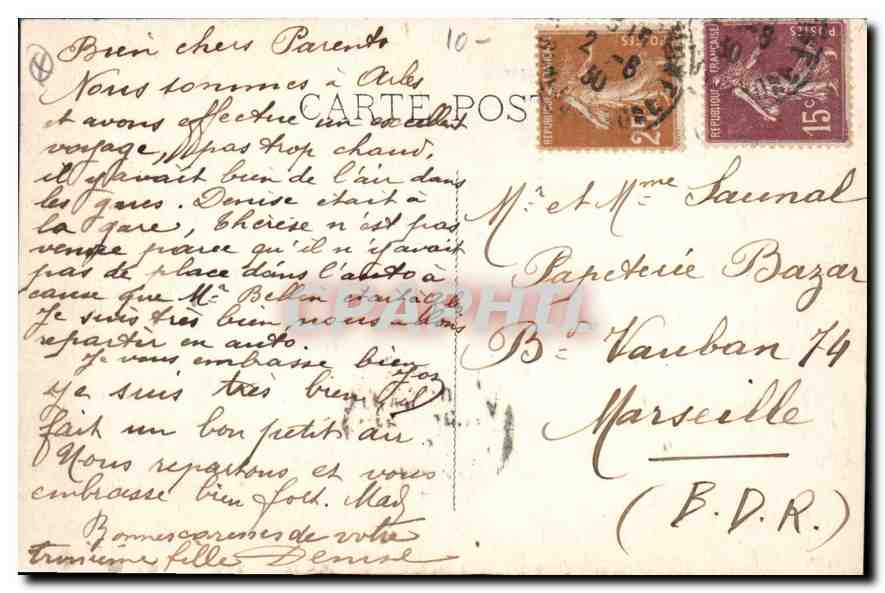 Bien chers Parents
10-
Nous sommes à Arles
CARTE POST
et avons effectué un excellent
voyage, pas trop chaud,
il y avait bien de l'air dans
les gares. Denise était à
la gare, Thérèse n'est pas
venue parce qu'il n'y avait
pas de place dans l'auto à
cause que Mr Bellon était
Je suis très bien, nous allons
repartir en auto.
Je vous embrasse bien
je suis très bien, il
fait un bon petit air
Nous repartons et vous
embrasse bien fort. Mad
Bonnes caresses de votre
troisième fille Denise
REPUBLIQUE FRANÇAISE
POSTES
2
REPUBLIQUE FRANÇAISE
POSTES
15c
2 -8
30
-8
30
Mr et Mme Saunal
Papeterie Bazar
Bd Vauban 74
Marseille
(B.D.R.)
CPAPHIL